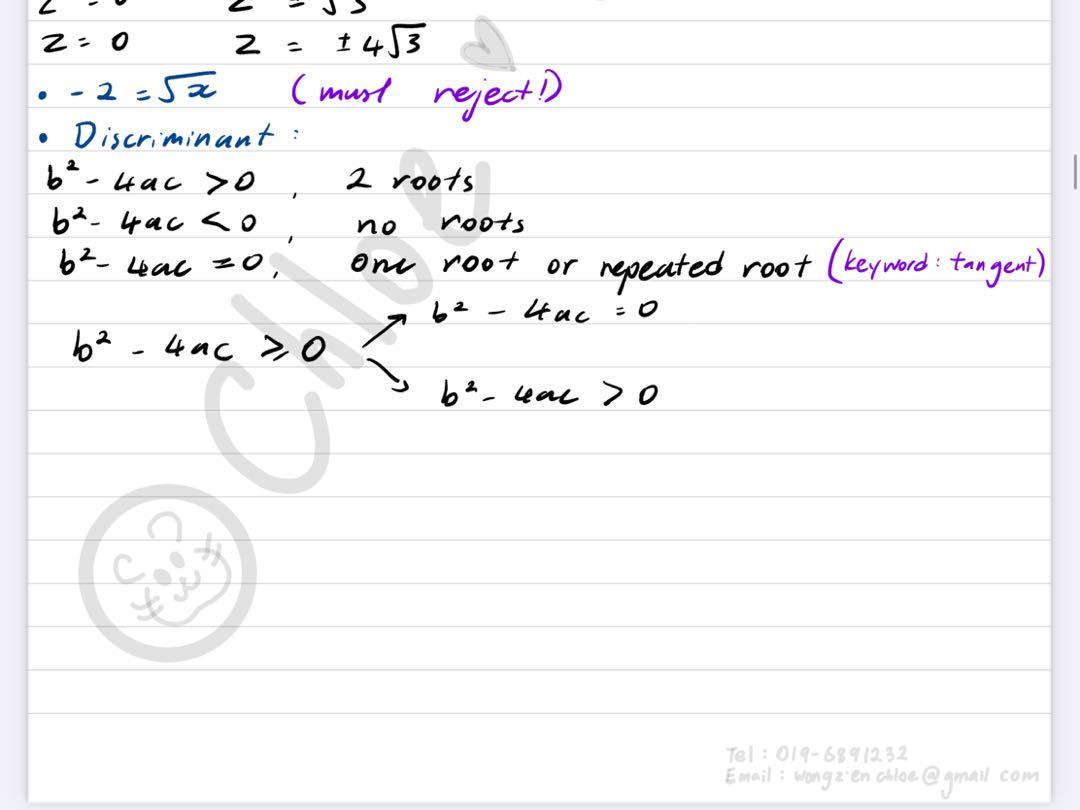 z = 0 z = ± 4√3
• - 2 = √x (must reject!)
• Discriminant :
b² - 4ac > 0 , 2 roots
b² - 4ac < 0 , no roots
b² - 4ac = 0, one root or repeated root (keyword : tangent)
b² - 4ac ≥ 0
b² - 4ac = 0
b² - 4ac > 0
Chloe
Tel : 019-6891232
Email : wongz·en chloe@gmail com